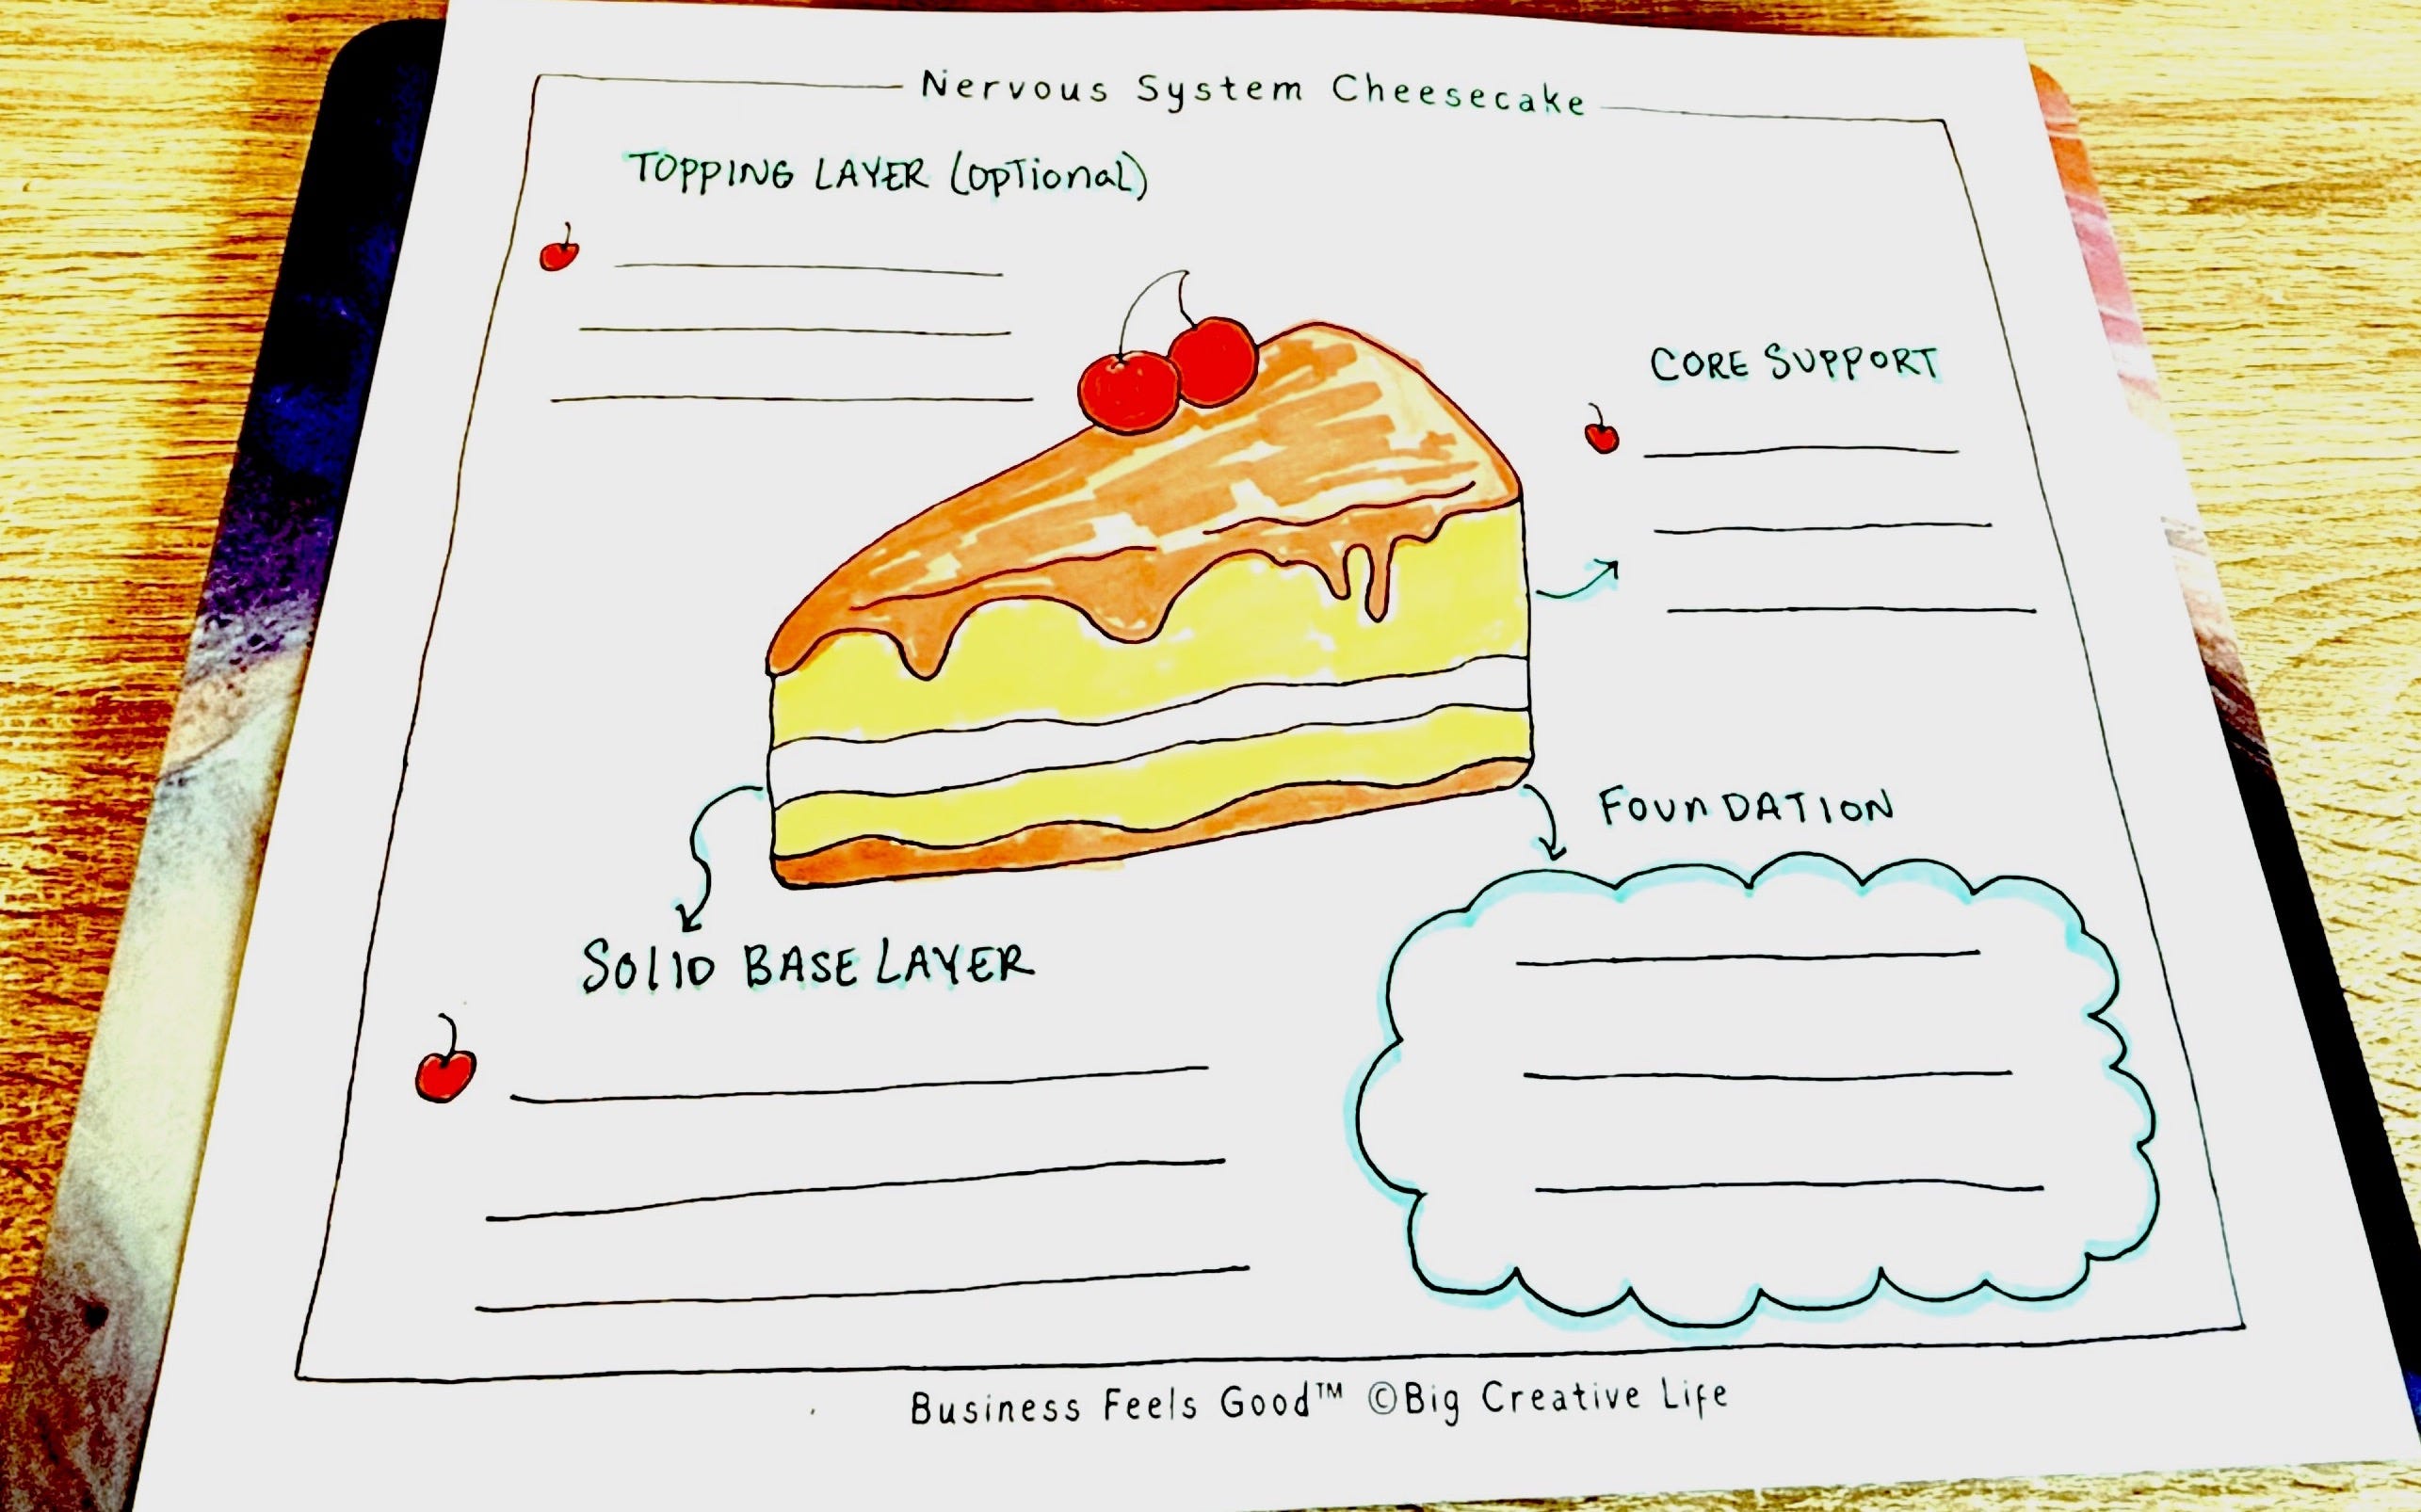 Nervous System Cheesecake
TOPPING LAYER (OPTional)
CORE SUPPORT
FOUNDATION
SOLID BASE LAYER
Business Feels Good™ ©Big Creative Life